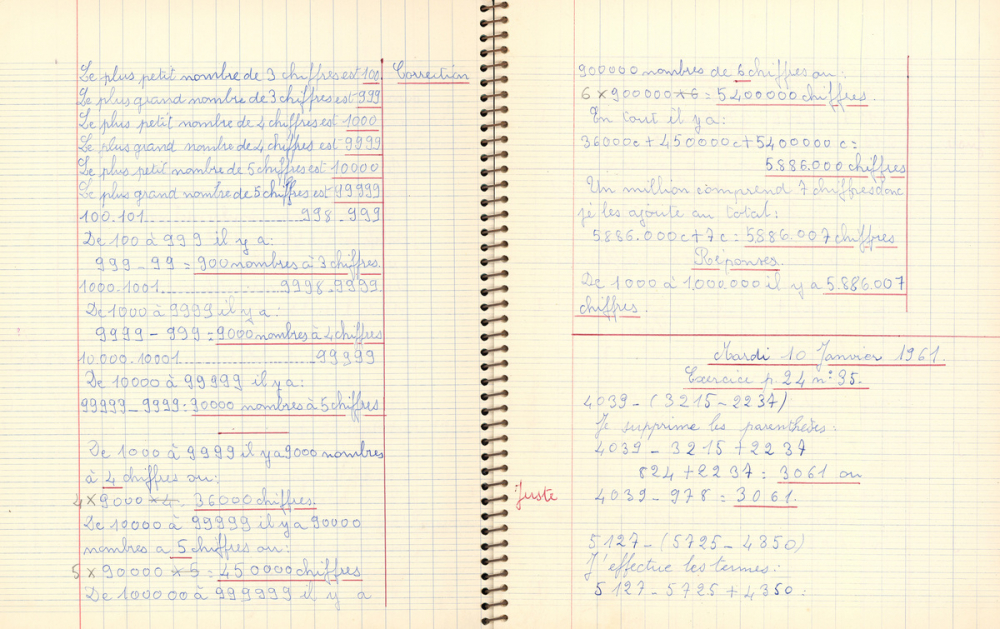 Le plus petit nombre de 3 chiffres est 100 Correction
Le plus grand nombre de 3 chiffres est 999
Le plus petit nombre de 4 chiffres est 1000
Le plus grand nombre de 4 chiffres est 9999
Le plus petit nombre de 5 chiffres est 10000
Le plus grand nombre de 5 chiffres est 99999
100.101..............................998-999
De 100 à 999 il y a:
999-99 = 900 nombres à 3 chiffres.
1000.1001......................9998-9999
De 1000 à 9999 il y a:
9999 - 999 = 9000 nombres à 4 chiffres
10.000.10001......................99999
De 10000 à 99999 il y a:
99999-9999= 90000 nombres à 5 chiffres
De 1000 à 9999 il y a 9000 nombres
à 4 chiffres ou:
4 × 9000 × 4 = 36000 chiffres.
De 10000 à 99999 il y a 90000
nombres a 5 chiffres ou:
5 × 90.000 × 5 = 450000 chiffres
De 100000 à 999999 il y a
900000 nombres de 6 chiffres ou:
6 × 900000 × 6 = 5400000 chiffres.
En tout il y a:
36000c + 450000c + 5400000 c =
5.886.000 chiffres
Un million comprend 7 chiffres donc
je les ajoute au total:
5886.000c + 7c = 5.886.007 chiffres
Réponses.
De 1000 à 1.000.000 il y a 5.886.007
chiffres.
Mardi 10 Janvier 1961.
Exercice p. 24 n° 95.
4039-(3215-2237)
Je supprime les parenthèses:
4039 - 3215 + 2237
824 + 2237 = 3061 ou
Juste 4039 - 978 = 3061.
5127-(5725-4350)
J'effectue les termes:
5127-5725+4350=